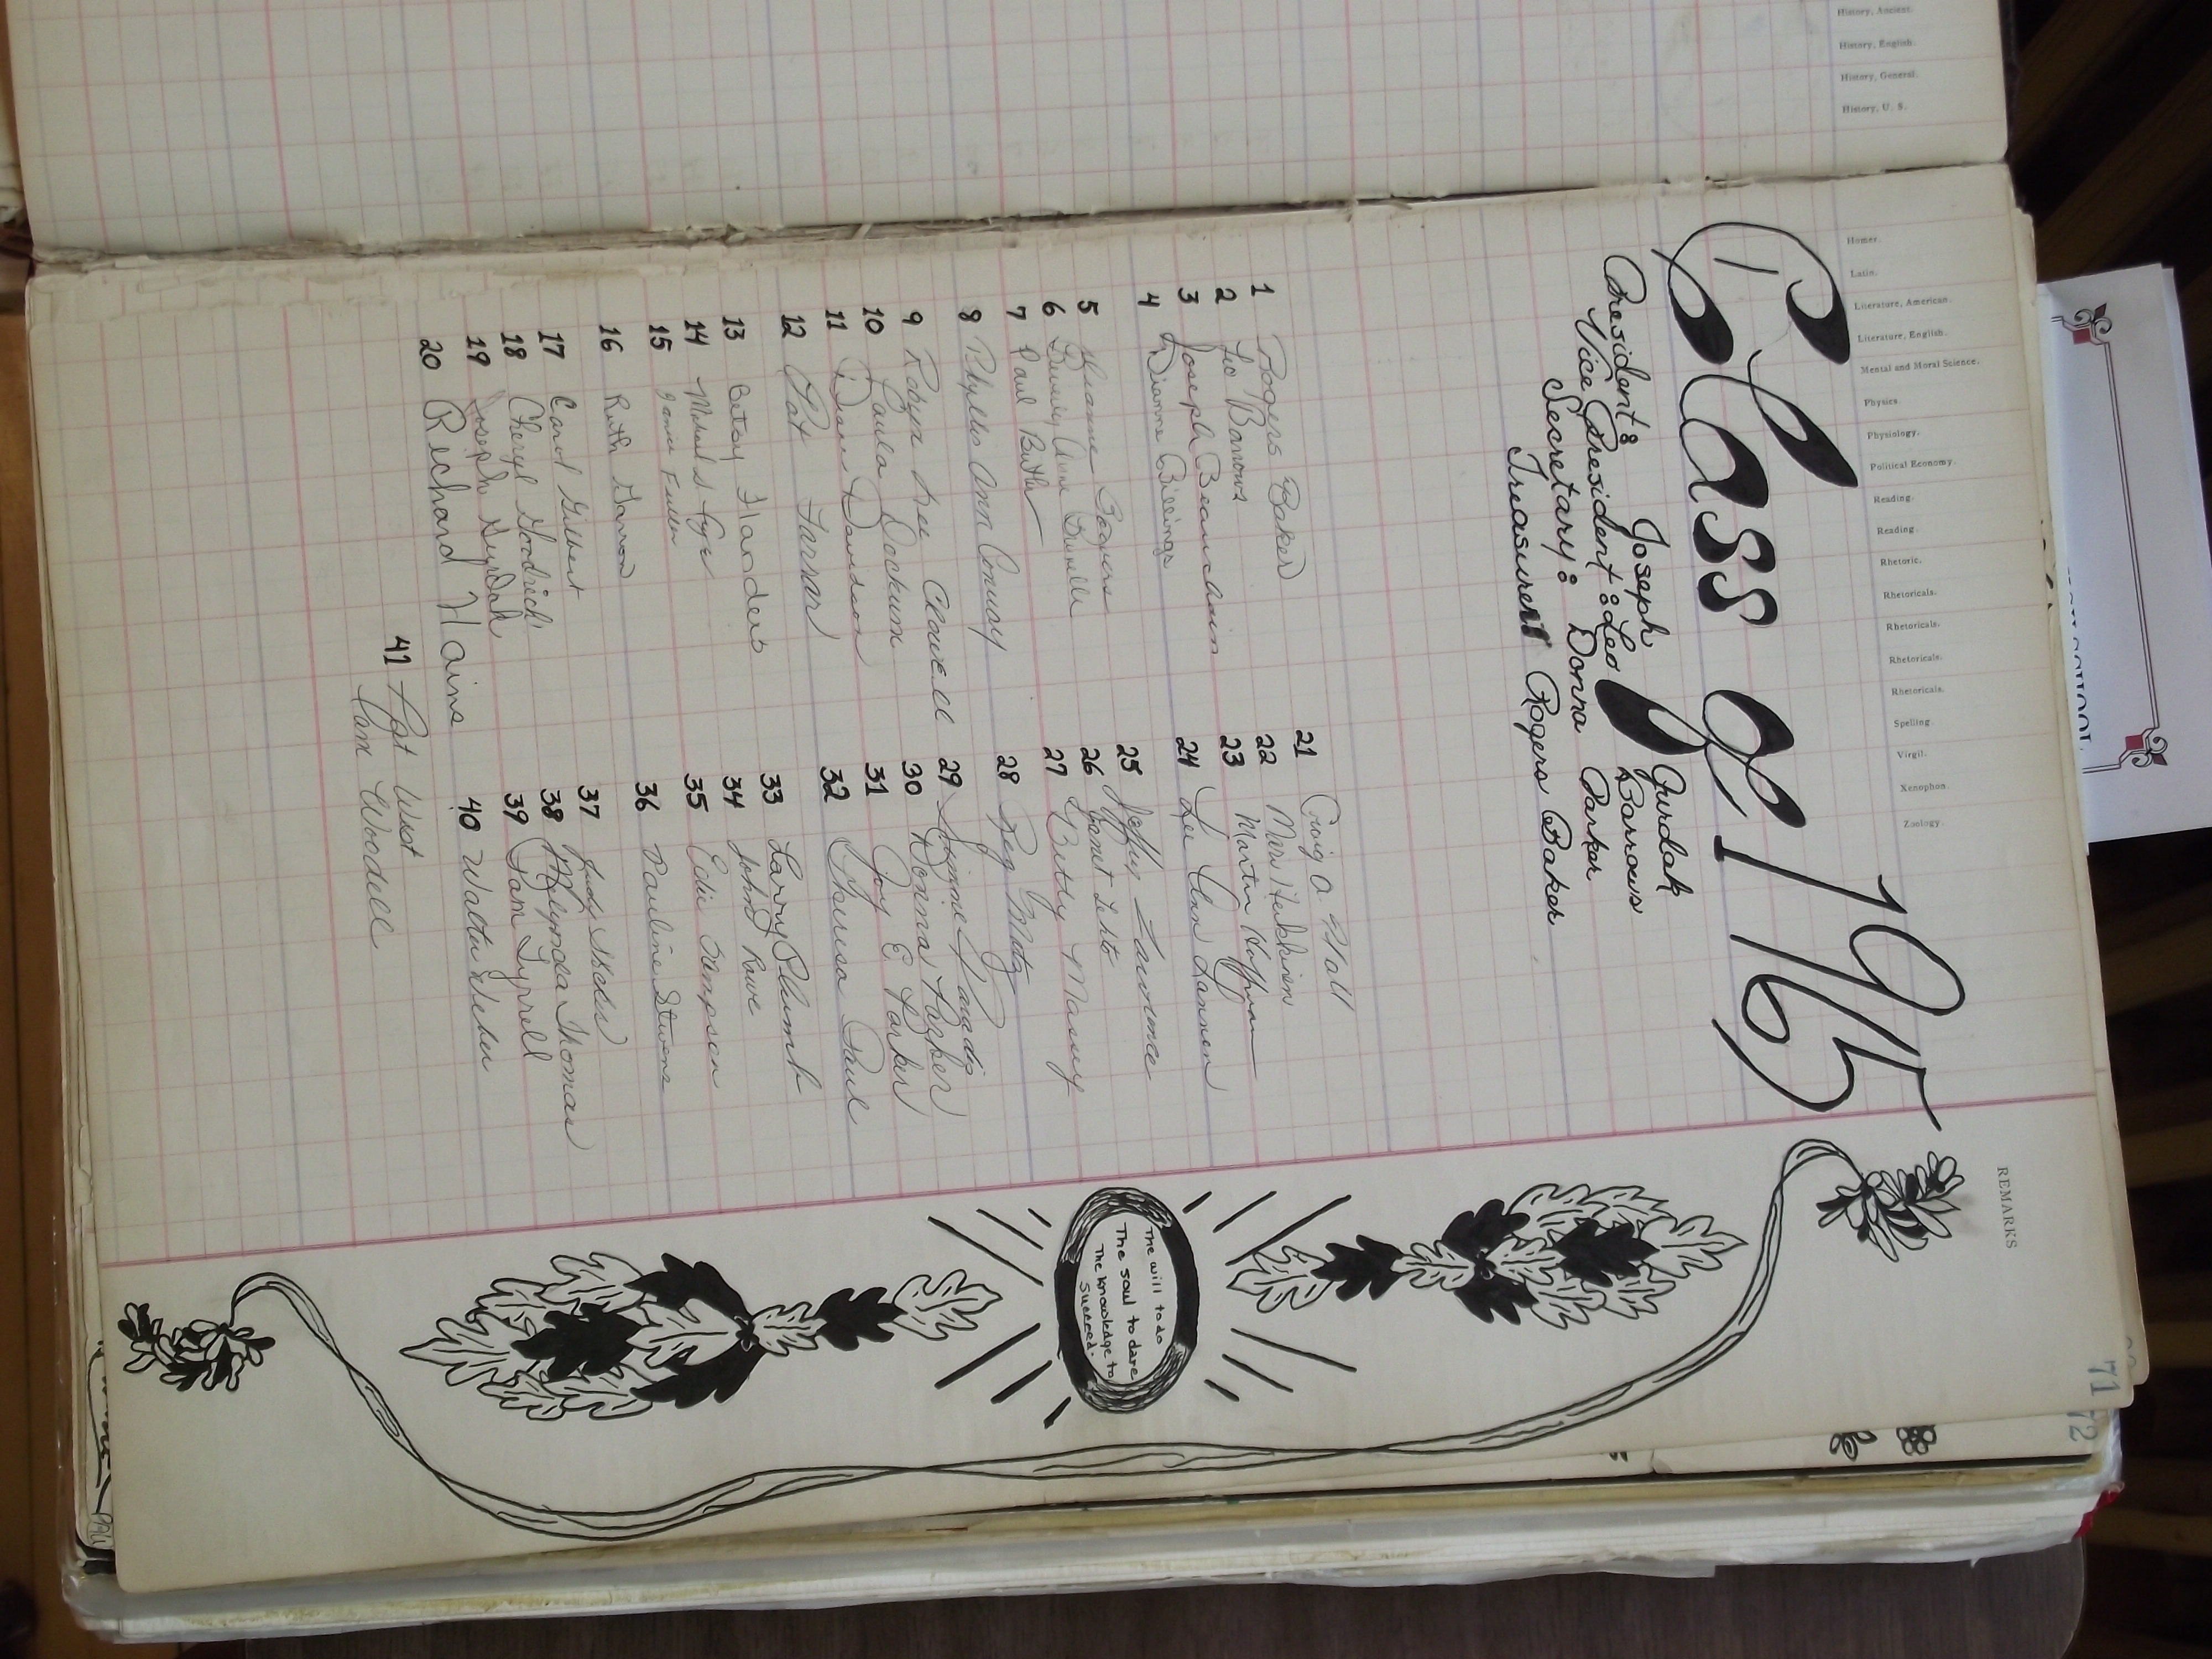 History, Ancient.
History, English.
History, General.
History, U. S.
Homer.
Latin.
Literature, American.
Literature, English.
Mental and Moral Science.
Physics.
Physiology.
Political Economy.
Reading.
Reading.
Rhetoric.
Rhetoricals.
Rhetoricals.
Rhetoricals.
Rhetoricals.
Spelling.
Virgil.
Xenophon.
Zoology.
REMARKS
71
72
Class of 1965
President: Joseph Gurdak
Vice President: Leo Barrows
Secretary: Donna Parker
Treasurer Rogers Baker
1 Rogers Baker
2 Leo Barrows
3 Joseph Beauchain
4 Dianne Billings
5 Dianne
6 Beverly Anne
7 Paul Butler
8 Phyllis Ann Conway
9 Robyn Lee Crowell
10 Paula Dockum
11 Diane Davidson
12 Pat Farrar
13 Betsy Flanders
14 Michael S Frye
15 James Fuller
16 Ruth Garron
17 Carol Gilbert
18 Cheryl Goodrich
19 Joseph Gurdak
20 Richard Hains
21 Craig A. Hall
22
23 Martin Hoffman
24 Lee Ann Lannon
25 Jeffrey Lawrence
26 Janet Lehto
27 Betty Massey
28 Peg Metz
29
30 Donna Parker
31 Joy E Parker
32 Theresa Paul
33 Larry Plumb
34 John Rowe
35 Edie Sampson
36 Pauline Stevens
37 Judy
38 Melynda Thomas
39 Pam Tyrrell
40 Walter Weber
41 Pat West
Pam Woodell
The will to do
The soul to dare
The knowledge to
Succeed.